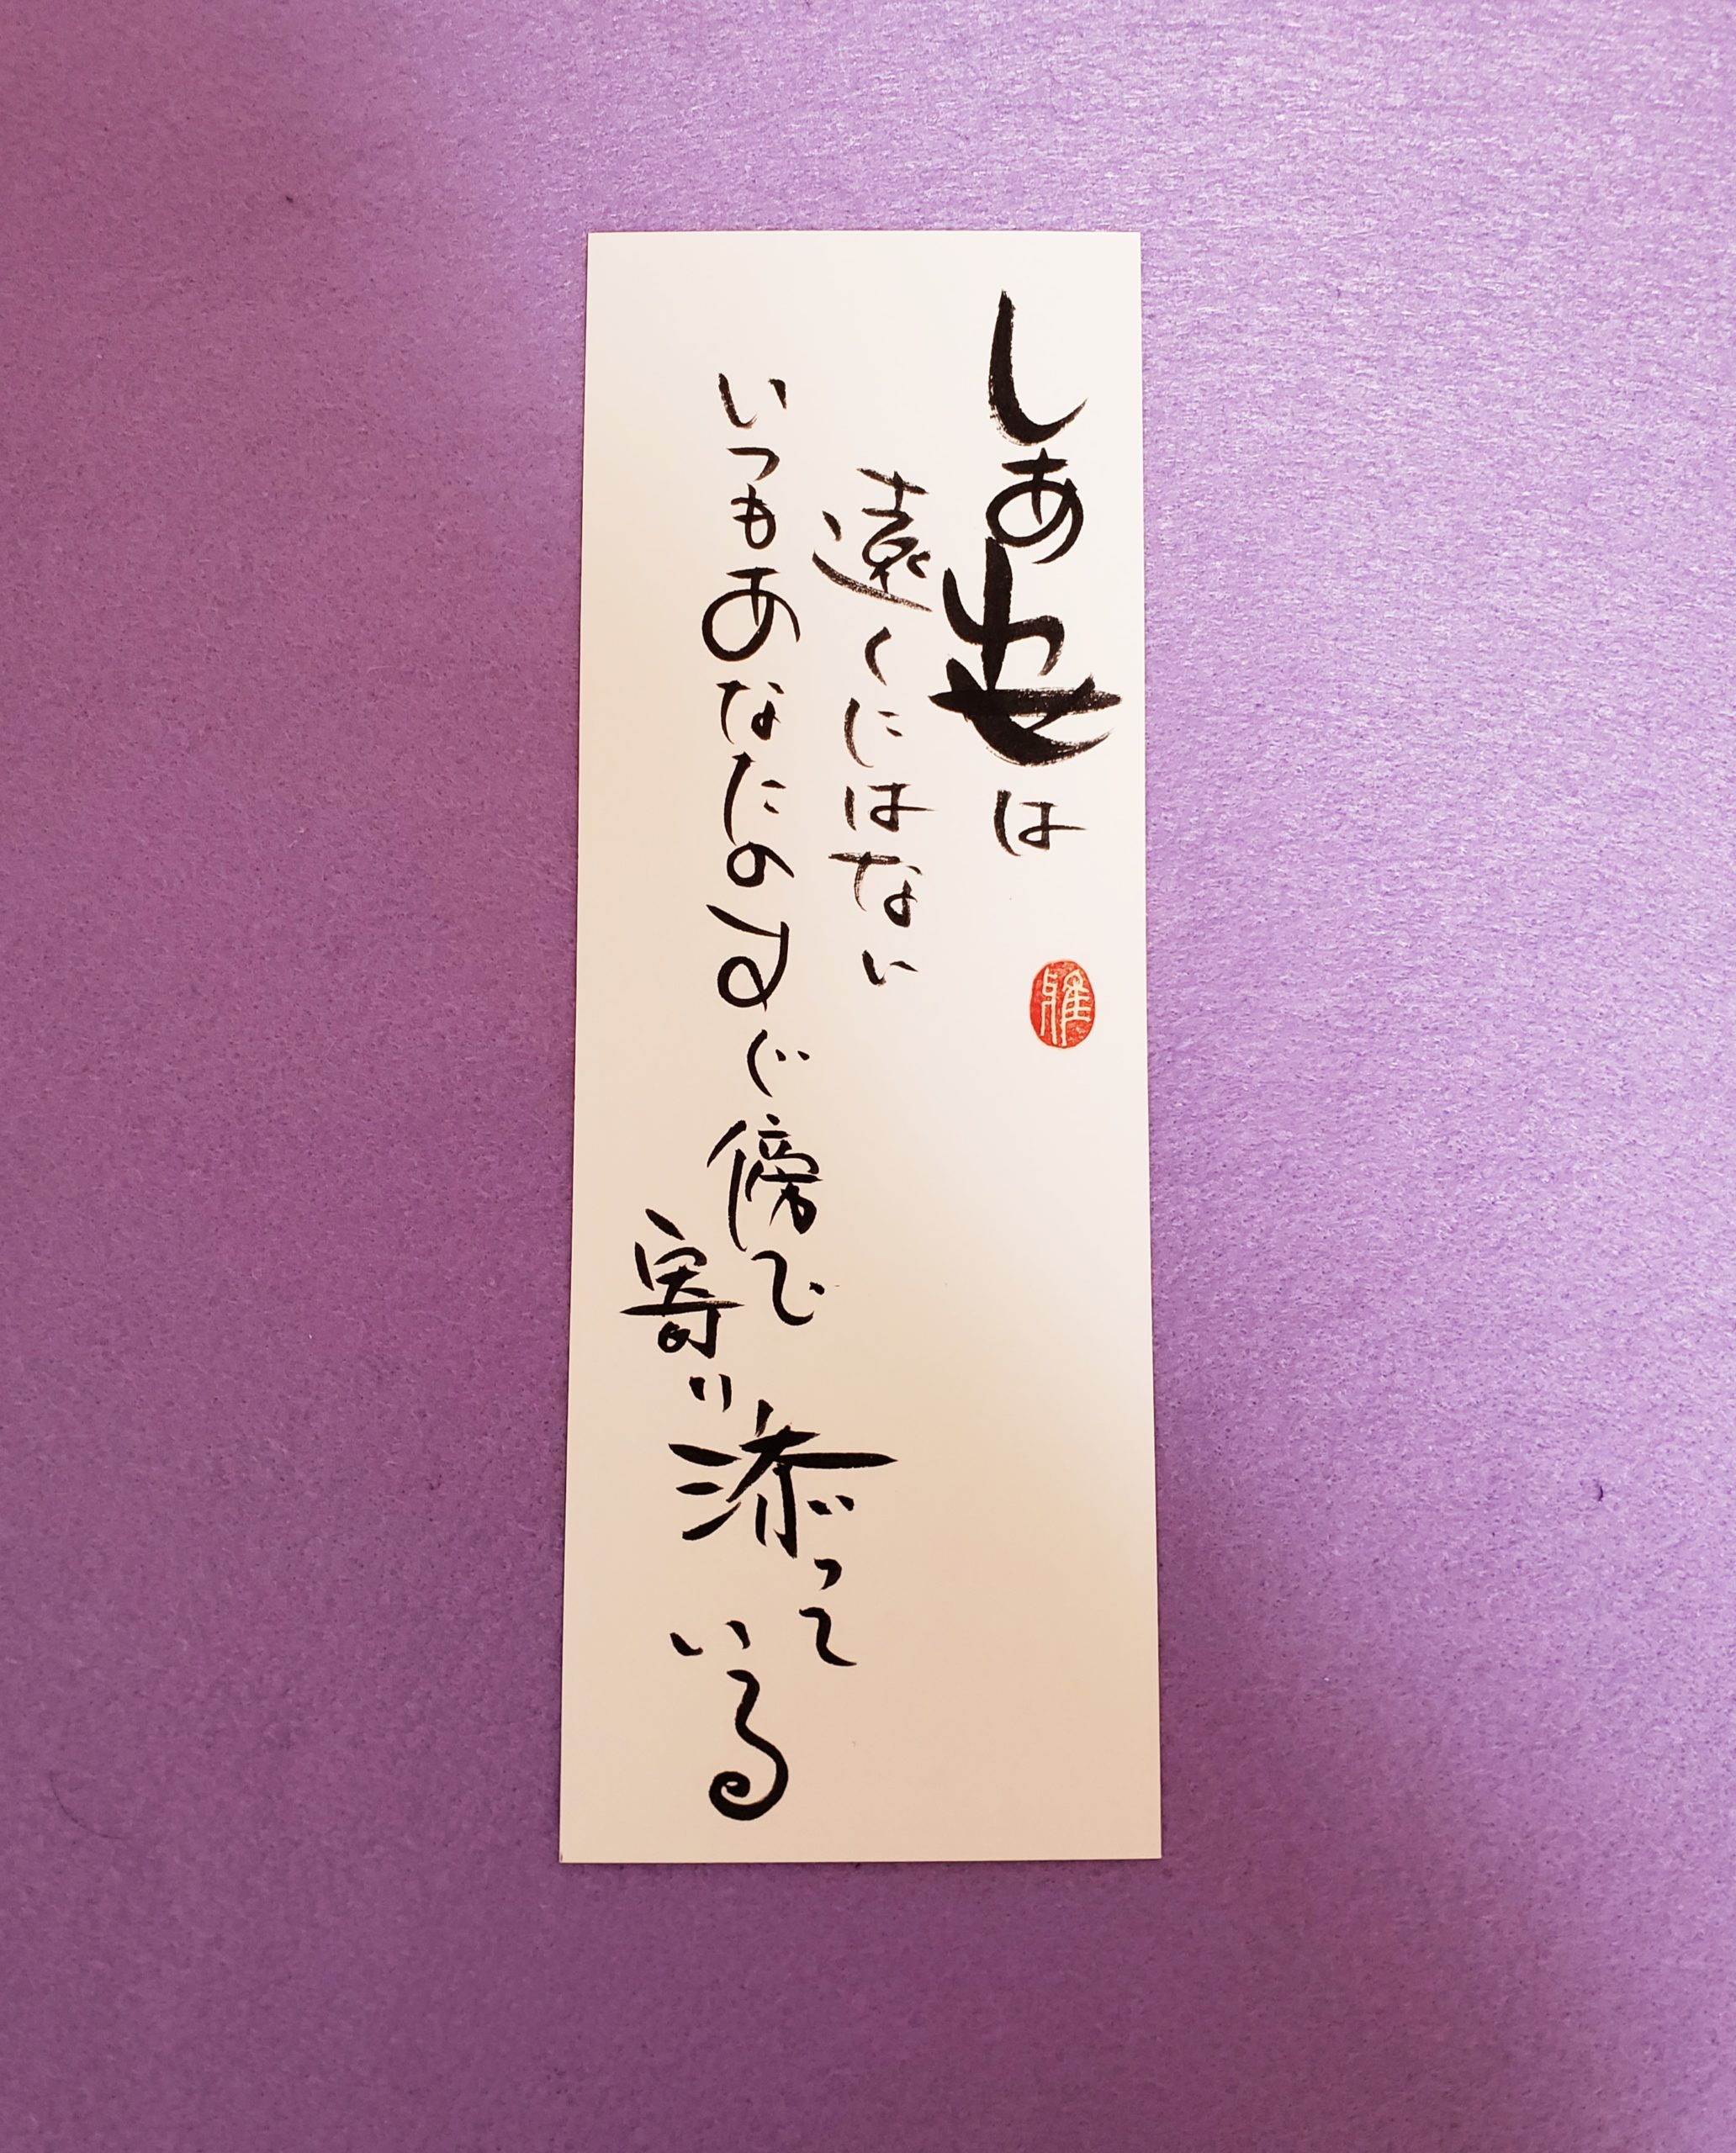 しあわせは
遠くにはない
いつもあなたのすぐ傍で
寄り添って
いる
雅